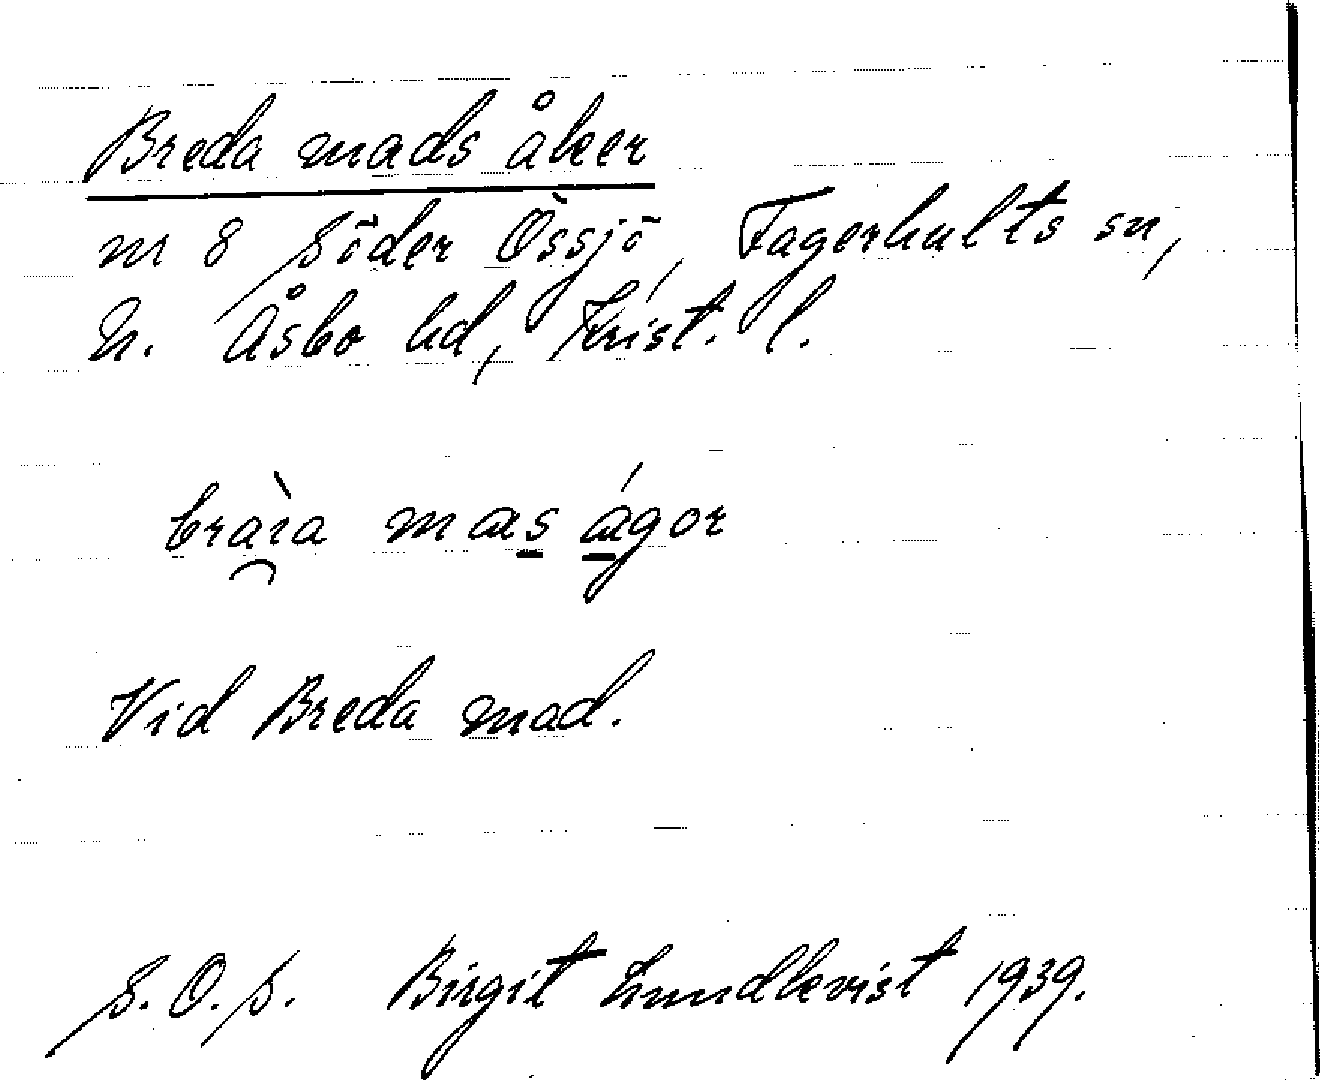 Breda mads åker
m 8 Söder Össjö, Fagerhults sn,
N. Åsbo hd, Krist. l.
bràıa mas ágor
Vid Breda mad.
S.O.S. Birgit Lundkvist 1939.